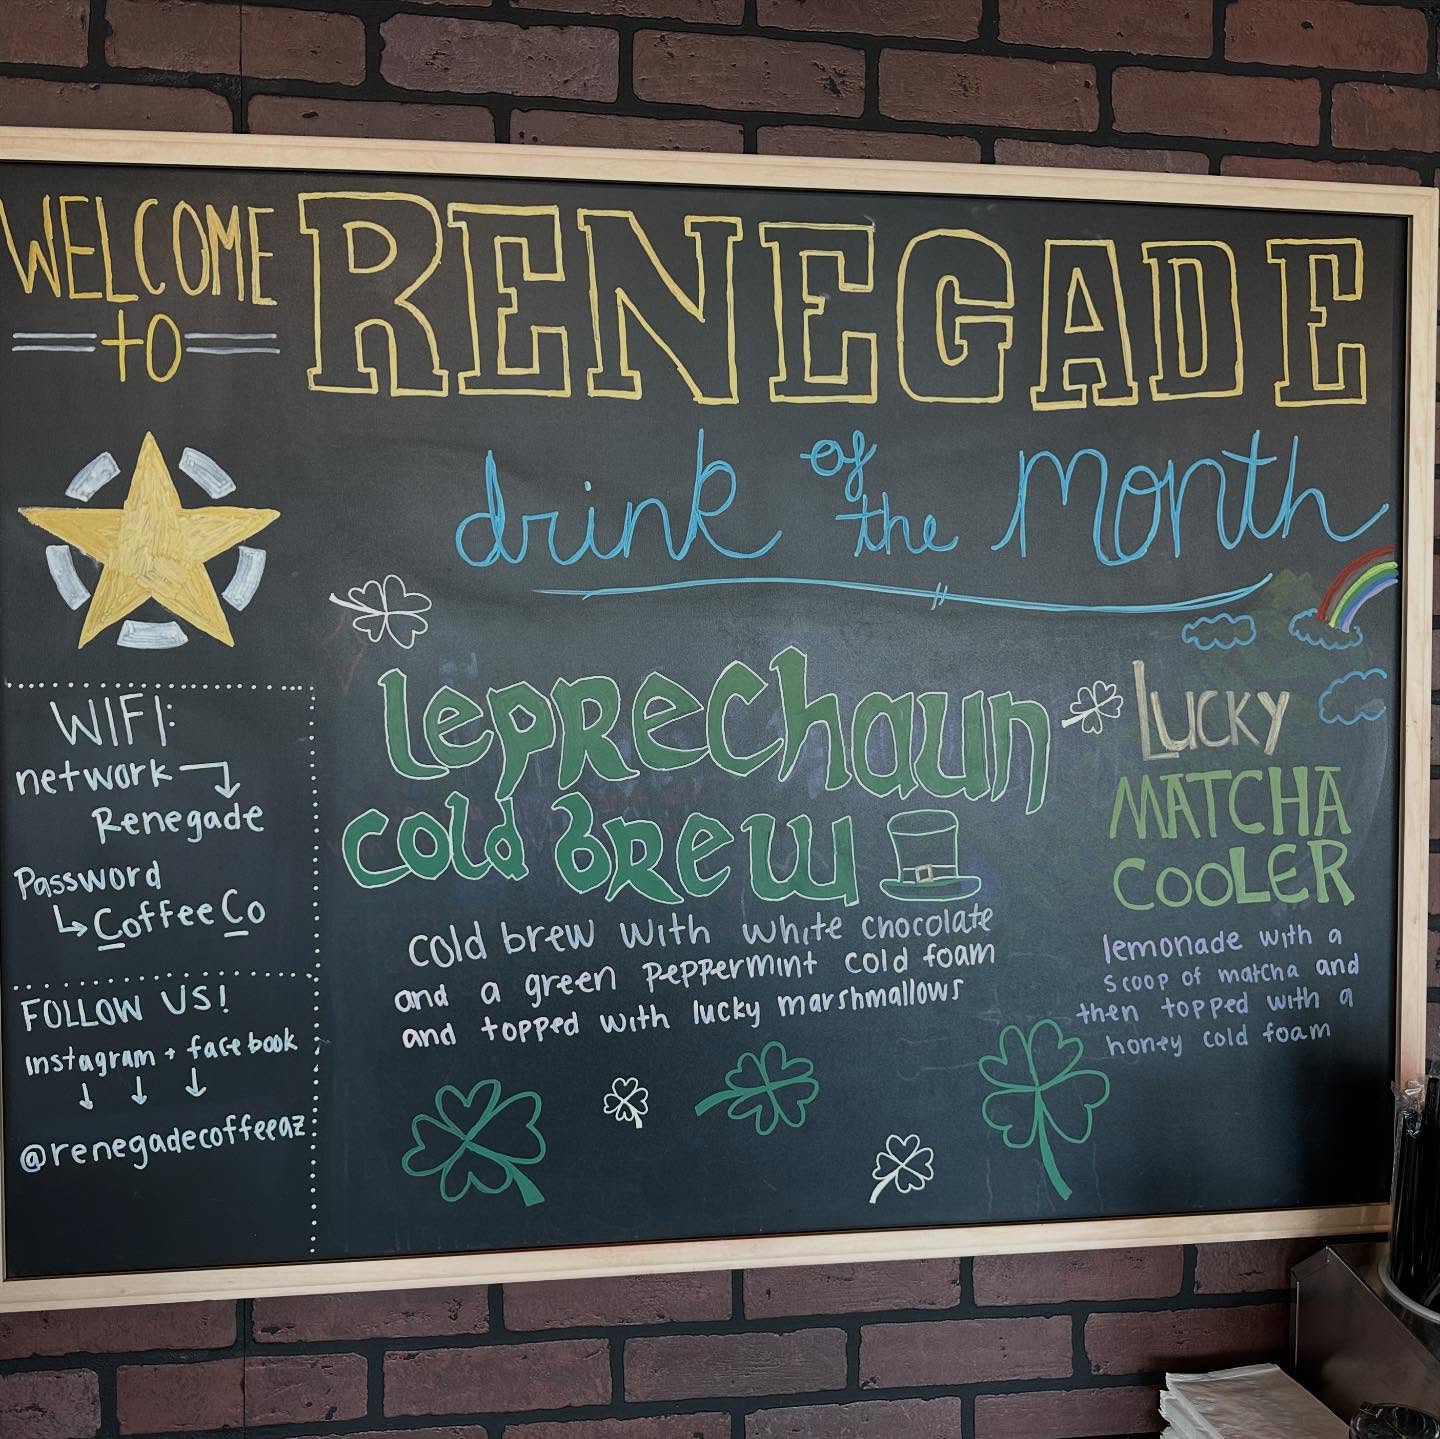 WELCOME
to
RENEGADE
drink of the Month
WIFI:
network
Renegade
Password
CoffeeCo
FOLLOW US!
instagram + facebook
@renegadecoffeeaz
Leprechaun
Cold Brew
cold brew with white chocolate
and a green peppermint cold foam
and topped with lucky marshmallows
Lucky
MATCHA
COOLER
lemonade with a
scoop of matcha and
then topped with a
honey cold foam